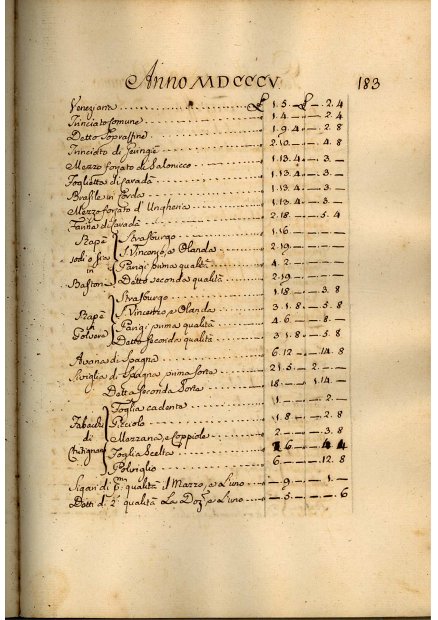 Anno MDCCCV. 183
Veneziana £ 1.5 £ — 2.4
Trinciato Comune 1.4 — 2.4
Detto Soprafine 1.9.4 — 2.8
Trinciato di 2.10 — 4.8
Mezzo forzato di Salonicco 1.13.4 — 3. —
Foglietta di Levada 1.13.4 — 3. —
Brasile in Corda 1.13.4 — 3. —
Mezzo forzato d'Ungheria 1.13.4 — 3. —
Farina di Levada 2.18 — 5.4
Rapè sodi o sia in Bastone
Strasburgo 1.16
S. Vincenzo, e Olanda 2.19
Parigi prima qualità 4.2
Detto seconda qualità 2.19
Rapè in Polvere
Strasburgo 1.18 — 3.8
S. Vincenzo, e Olanda 3.1.8 — 5.8
Parigi prima qualità 4.6 — 8. —
Detto seconda qualità 3.1.8 — 5.8
Avana di Spagna 6.12 — 14.8
Siviglia di Spagna prima sorte 21.5 — 2. —
Detta seconda Sorte 18. — 1.14. —
Tabacchi di
Foglia cadente 1. — — 2. —
Picciolo 1.8 — 2.8
Mezzana, e Coppiole 2 — 3.8
Foglia Scelta 2 6 — 4 4
Polviglio 6 — 12.8
Sigari di p.ma qualità il Mazzo, e l'uno — 9. — 1. —
Detti di 2.a qualità La Doz.a e l'uno — 5. — — 6